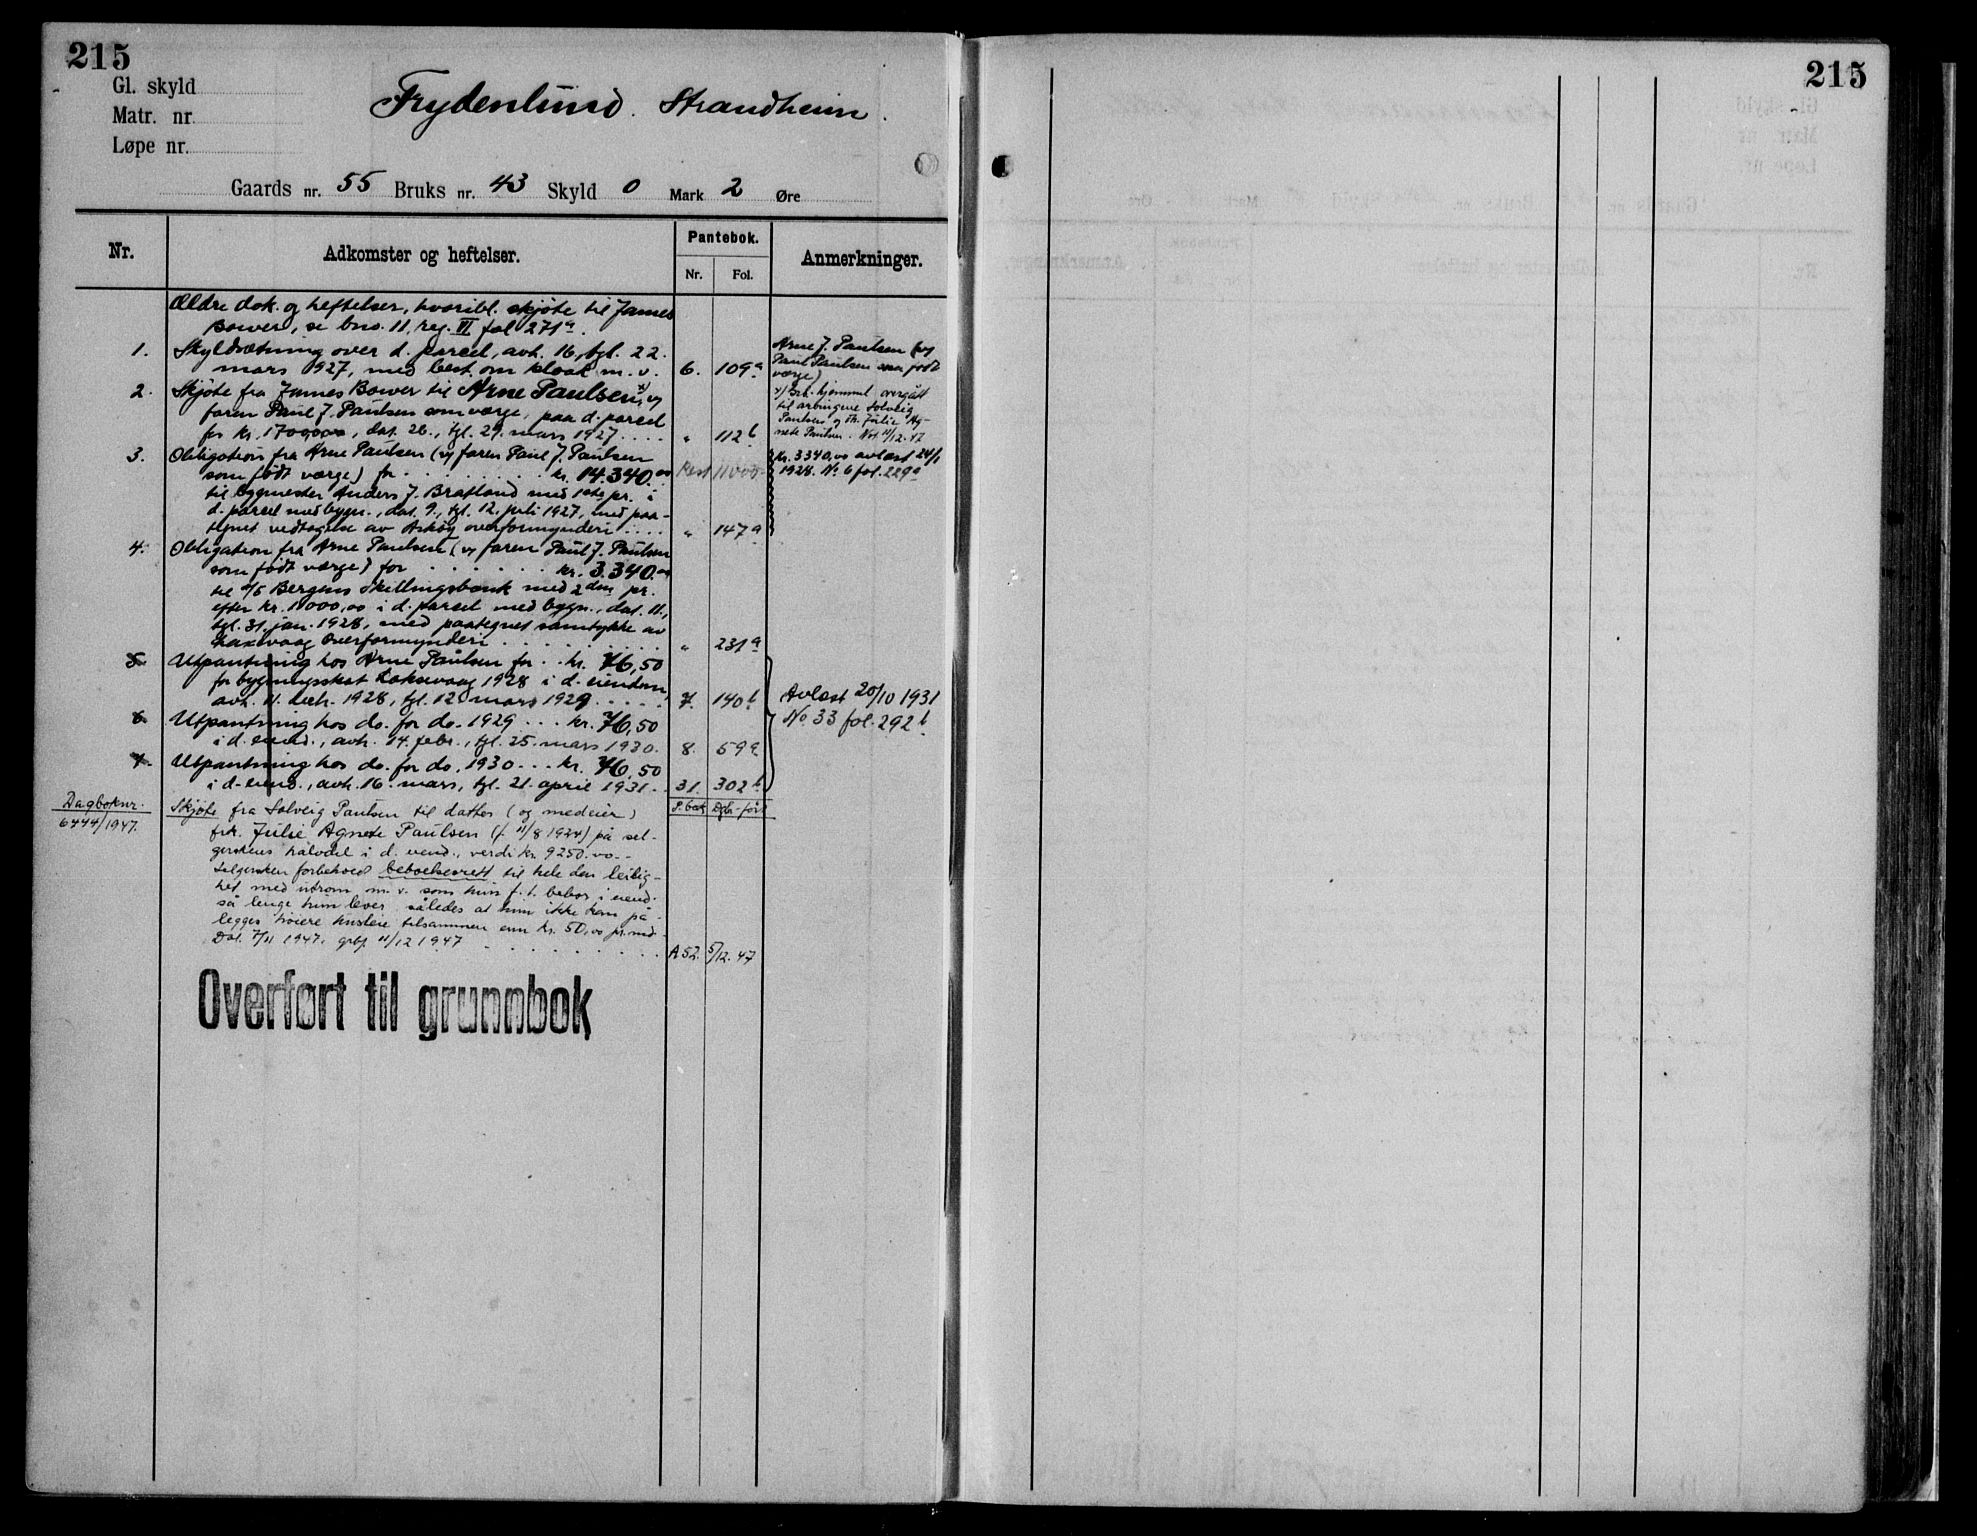 215
Gl. skyld
Matr. nr.
Løpe nr.
Frydenlund. Strandheim.
Gaards nr. 55 Bruks nr. 43 Skyld 0 Mark 2 Øre
Nr. Adkomster og heftelser. Pantebok. Anmerkninger.
Nr. Fol.
Ældre dok. og heftelser, hvoribl. skjøte til James
Bower, se bno. 11, reg. VI fol 271a.
1. Skyldsætning over d. parcel, avh. 16, tgl. 22.
mars 1927, med best. om kloak m. v. 6. 109a
2. Skjøte fra James Bower til Arne Paulsen x), v/
faren Paul J. Paulsen som værge, paa d. parcel
for kr. 17000,00, dat. 26., tgl. 29. mars 1927 .... " 112b
3. Obligation fra Arne Paulsen (v/ faren Paul J. Paulsen
som født værge) for ....... kr. 14.340.00 Rest 11000-
til bygmester Anders J. Bratland med 1ste pr. i
d. parcel med bygn., dat. 9., tgl. 12. juli 1927, med paa-
tegnet vedtagelse av Askøy overformynderi .... " 147a
4. Obligation fra Arne Paulsen (v/ faren Paul J. Paulsen
som født værge) for ...... kr. 3.340.00
til A/S Bergens Skillingsbank med 2den pr.
efter kr. 11000,00 i d. parcel med bygn., dat. 11.,
tgl. 31. jan. 1928, med paategnet samtykke av
Laxevaag Overformynderi ........ " 231a
5. Utpantning hos Arne Paulsen for .. kr. 76,50
for bygningsskat Laksevaag 1928 i d. eiendom,
avh. 11. decbr. 1928, tgl. 12. mars 1929 ..... 7. 140b
6. Utpantning hos do. for do. 1929 ... kr. 76,50
i d. eiend., avh. 14. febr., tgl. 25. mars 1930. 8. 59a
7. Utpantning hos do. for do. 1930 ... kr. 76,50
i d. eiend., avh. 16. mars, tgl. 21. april 1931 .. 31. 302b
Arne J. Paulsen (v/
Paul Paulsen som født
værge)
x) Grb. hjemmel overgått
til arvingene Solveig
Paulsen og Julie Ag-
nete Paulsen. Not. 11/12.47
Kr. 3340,00 avlæst 24/1
1928. No 6 fol. 229a
Avlæst 20/10 1931
No 33 fol. 292b
Dagboknr.
6444/1947.
P.bok Dgb.-ført
Skjøte fra Solveig Paulsen til datter (og medeier)
frk. Julie Agnete Paulsen (f. 11/8 1924) på sel-
gerskens halvdel i d. eiend., verdi kr. 9250.00.-
Selgersken forbeholdt beboelsesrett til hele den leilig-
het med uthrom m. v. som hun f. t. bebor i eiend.
så lenge hun lever, således at hun ikke kan på-
legges høiere husleie tilsammen enn kr. 50,00 pr. md.
Dat. 7/11 1947, grbf. 11/12 1947 ........ A 52. 5/12.47
Overført til grunnbok
215